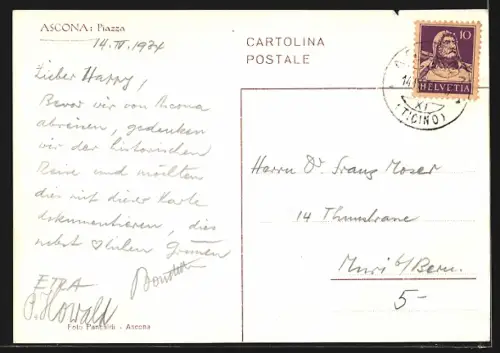 ASCONA: Piazza
14. IV. 1934
Lieber Harry,
Bevor wir von Ascona
abreisen, gedenken
wir der historischen
Reise und möchten
dies mit dieser Karte
dokumentieren, dies
nebst ♡lichen Grüssen
ETRA
P. Howald
Foto Pancaldi - Ascona
CARTOLINA
POSTALE
10
HELVETIA
14
XI
(TICINO)
Herrn Dr Franz Moser
14 Thunstrasse
Muri b/Bern.
5-